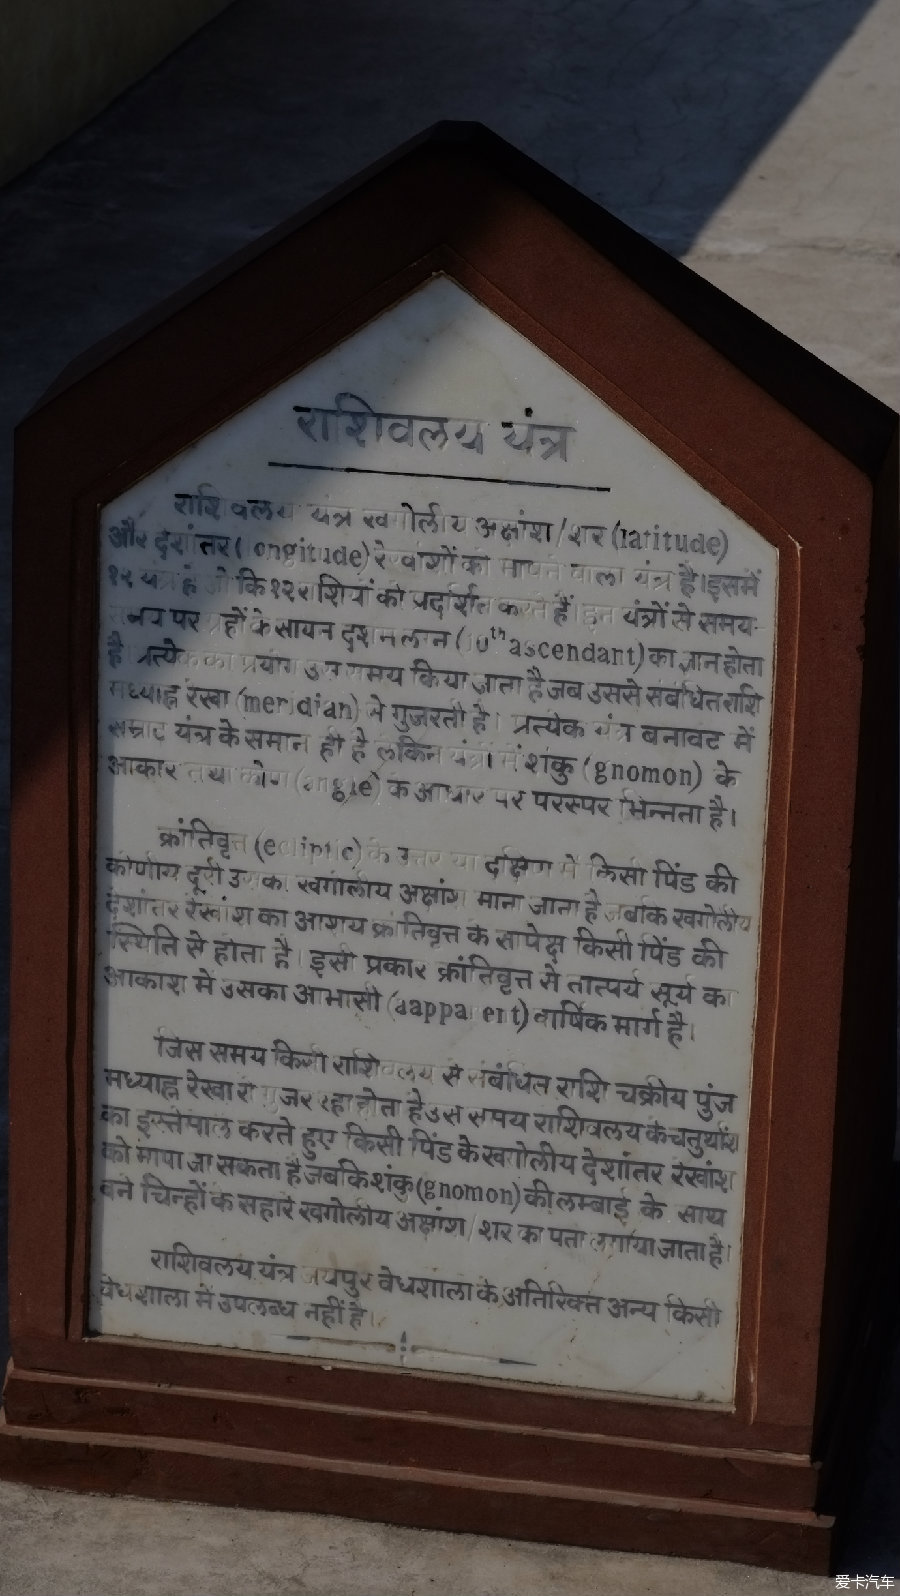 राशिवलय यंत्र
राशिवलय यंत्र खगोलीय अक्षांश/शर (latitude)
और देशांतर (longitude) रेखांशों को मापने वाला यंत्र है। इसमें
१२ यंत्र हैं जो कि १२ राशियों को प्रदर्शित करते हैं। इन यंत्रों से समय-
समय पर ग्रहों के सायन दशम लग्न (10th ascendant) का ज्ञान होता
है। प्रत्येक का प्रयोग उस समय किया जाता है जब उससे संबंधित राशि
मध्याह्न रेखा (meridian) से गुजरती है। प्रत्येक यंत्र बनावट में
सम्राट यंत्र के समान ही है लेकिन यंत्रों में शंकु (gnomon) के
आकार तथा कोण (angle) के आधार पर परस्पर भिन्नता है।
क्रांतिवृत्त (ecliptic) के उत्तर या दक्षिण में किसी पिंड की
कोणीय दूरी उसका खगोलीय अक्षांश माना जाता है जबकि खगोलीय
देशांतर रेखांश का आशय क्रांतिवृत्त के सापेक्ष किसी पिंड की
स्थिति से होता है। इसी प्रकार क्रांतिवृत्त से तात्पर्य सूर्य का
आकाश में उसका आभासी (aapparent) वार्षिक मार्ग है।
जिस समय किसी राशिवलय से संबंधित राशि चक्रीय पुंज
मध्याह्न रेखा से गुजर रहा होता है उस समय राशिवलय के चतुर्थांश
का इस्तेमाल करते हुए किसी पिंड के खगोलीय देशांतर रेखांश
को मापा जा सकता है जबकि शंकु (gnomon) की लम्बाई के साथ
बने चिन्हों के सहारे खगोलीय अक्षांश/शर का पता लगाया जाता है।
राशिवलय यंत्र जयपुर वेधशाला के अतिरिक्त अन्य किसी
वेधशाला में उपलब्ध नहीं है।
爱卡汽车